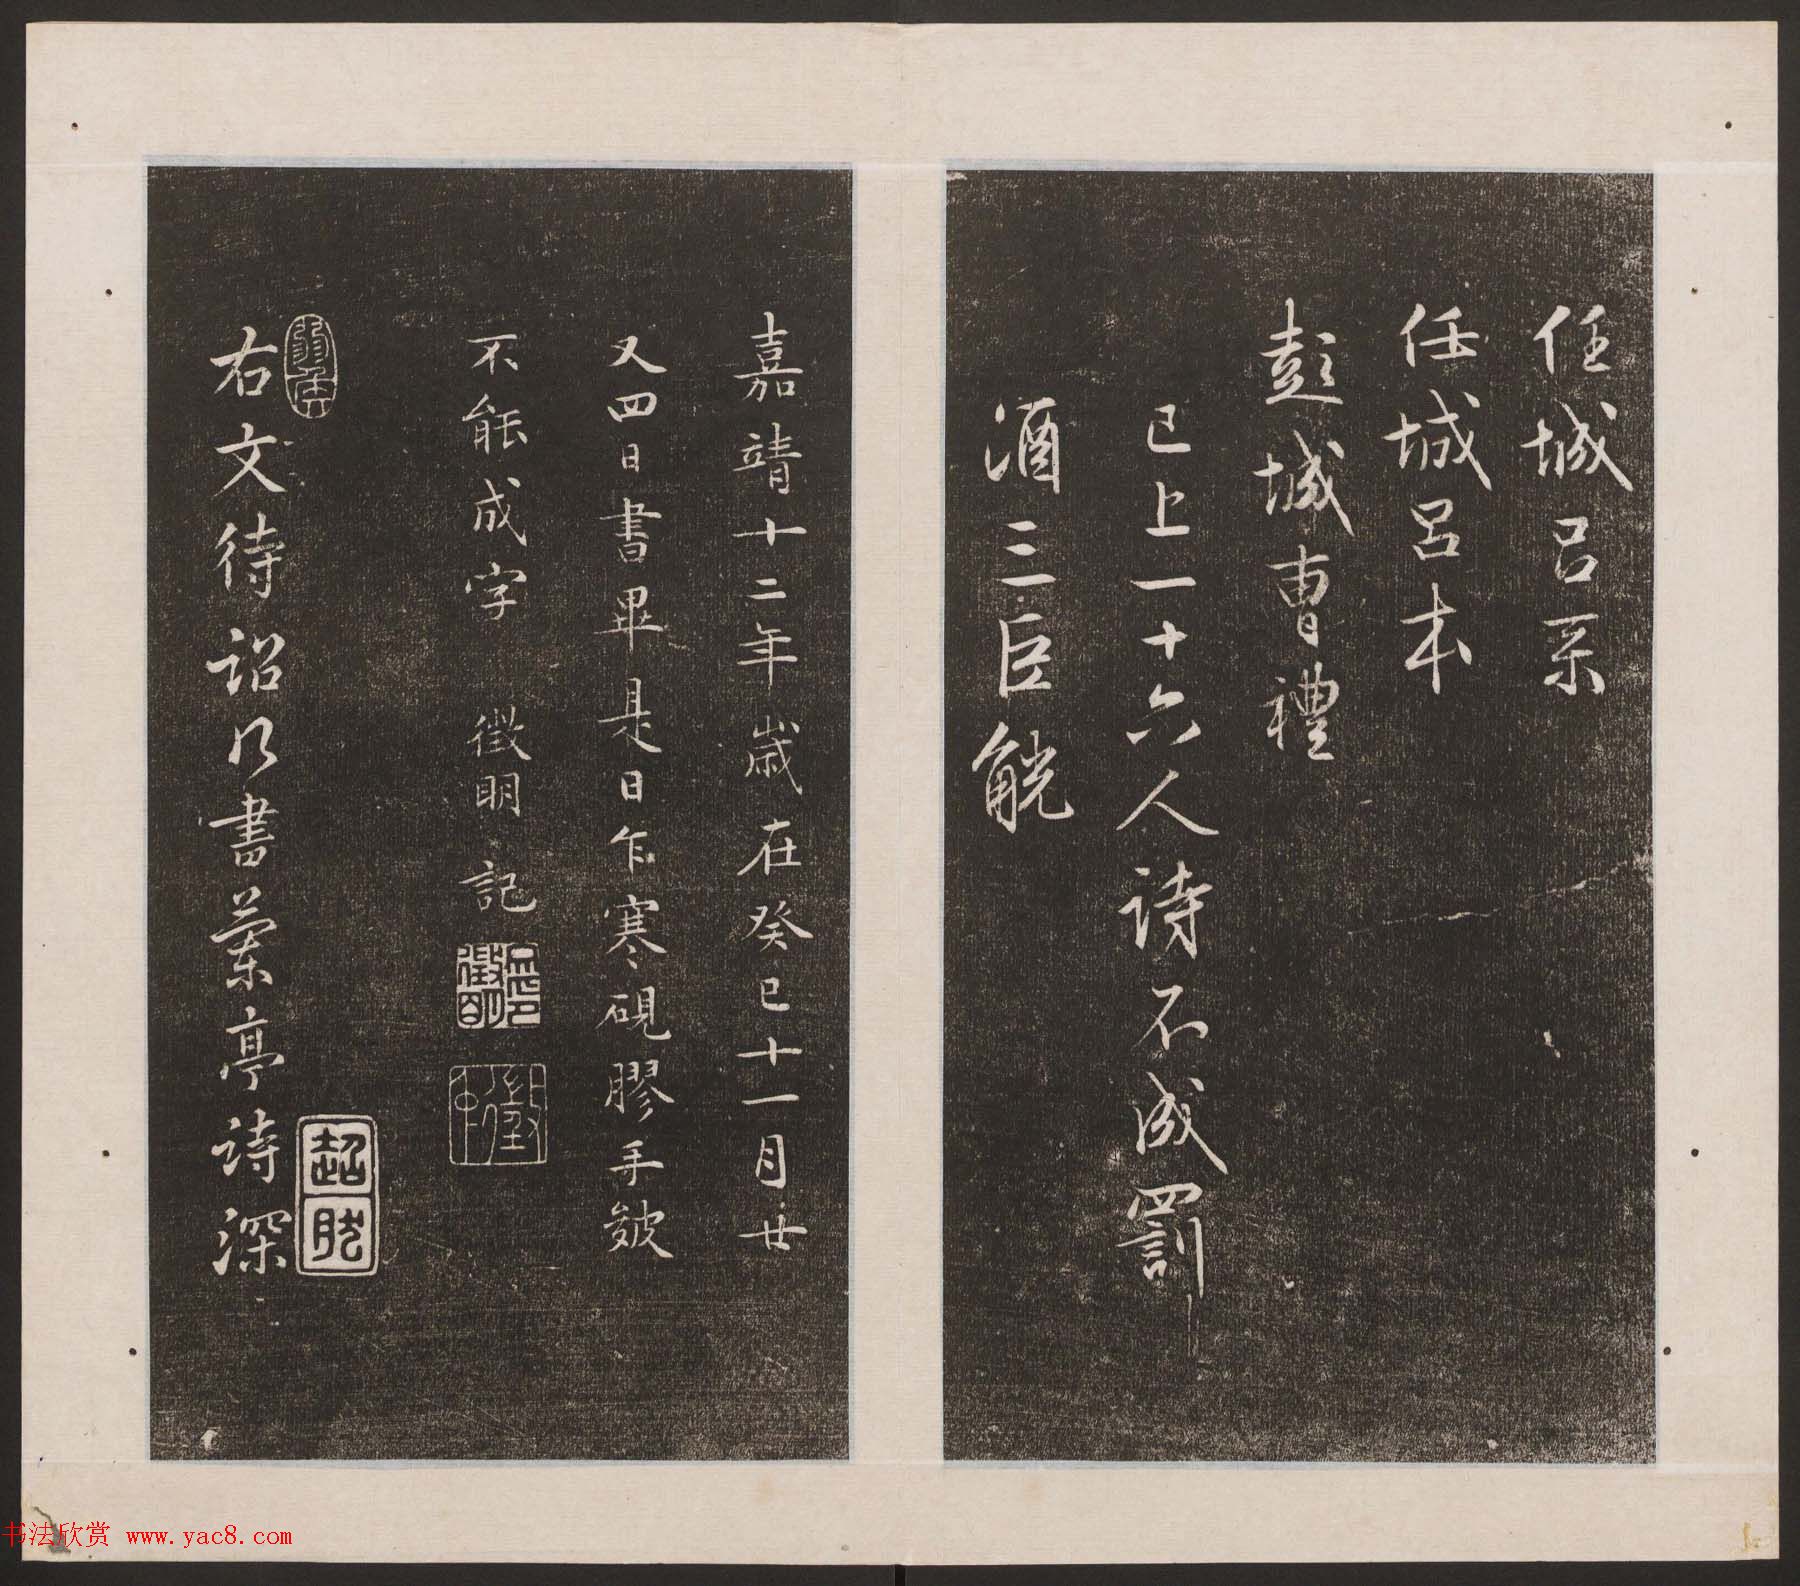 任城呂系
任城呂本
彭城曹禮
已上一十六人詩不成罰
酒三巨觥
嘉靖十二年歲在癸巳十一月廿
又四日書畢是日乍寒硯膠手皴
不能成字　徵明記
右文待詔乃書蘭亭詩深
超然
书法欣赏 www.yac8.com